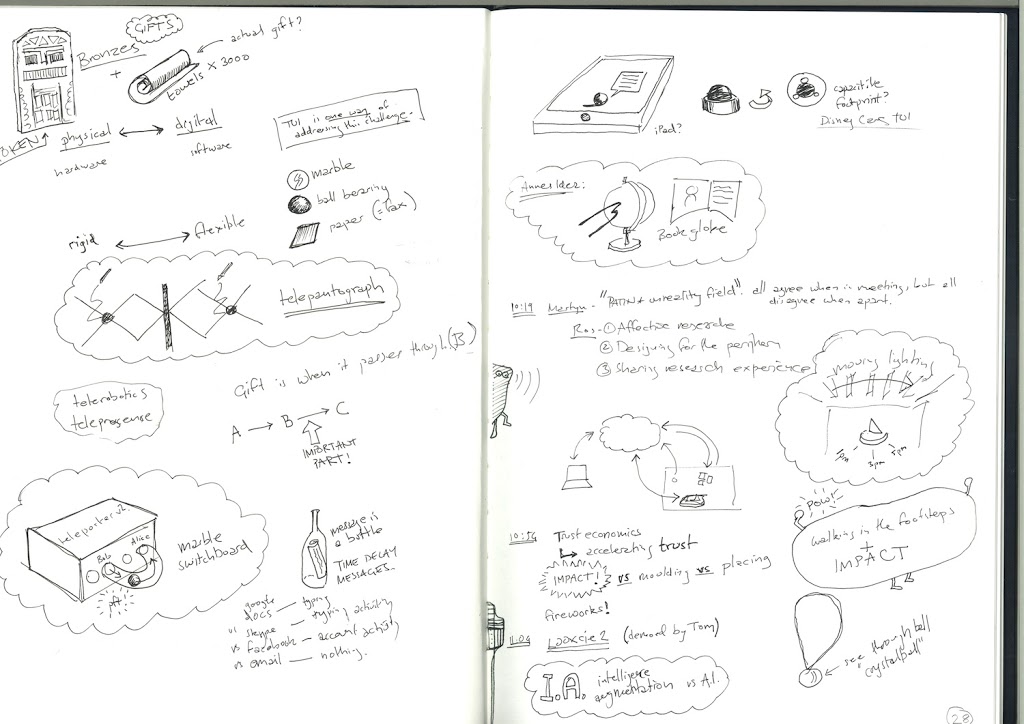 GIFTS
Bronzes
+
actual gift?
towels x 3000
TOKEN
physical
digital
hardware
software
TUI is one way of
addressing this challenge.
marble
ball bearing
paper (=Fax)
rigid
flexible
telepantograph
Gift is when it passes through (B)
telerobotics
telepresence
A → B → C
IMPORTANT
PART!
teleporter v2.
Bob
Alice
pft!
marble
switchboard
message in
a bottle
TIME DELAY
MESSAGES...
google
docs — typing
vs skype — typing activity
vs facebook — account activity
vs email — nothing.
iPad?
capacitive
footprint?
Disney Cars TUI
Anne's Idea:
Book globe
10:19 Martyn - "PATINA unreality field": all agree when in meeting, but all
disagree when apart.
Ros - ① Affective research
② Designing for the periphery
③ Sharing research experience
moving lighting
1pm
3pm
5pm
10:56 Trust economics
accelerating trust
IMPACT! vs moulding vs placing
fireworks!
POW!
walking in the footsteps
+
IMPACT
11.04 (demoed by Tom)
I.A. intelligence
augmentation vs A.I.
see through ball
"crystal ball"
28